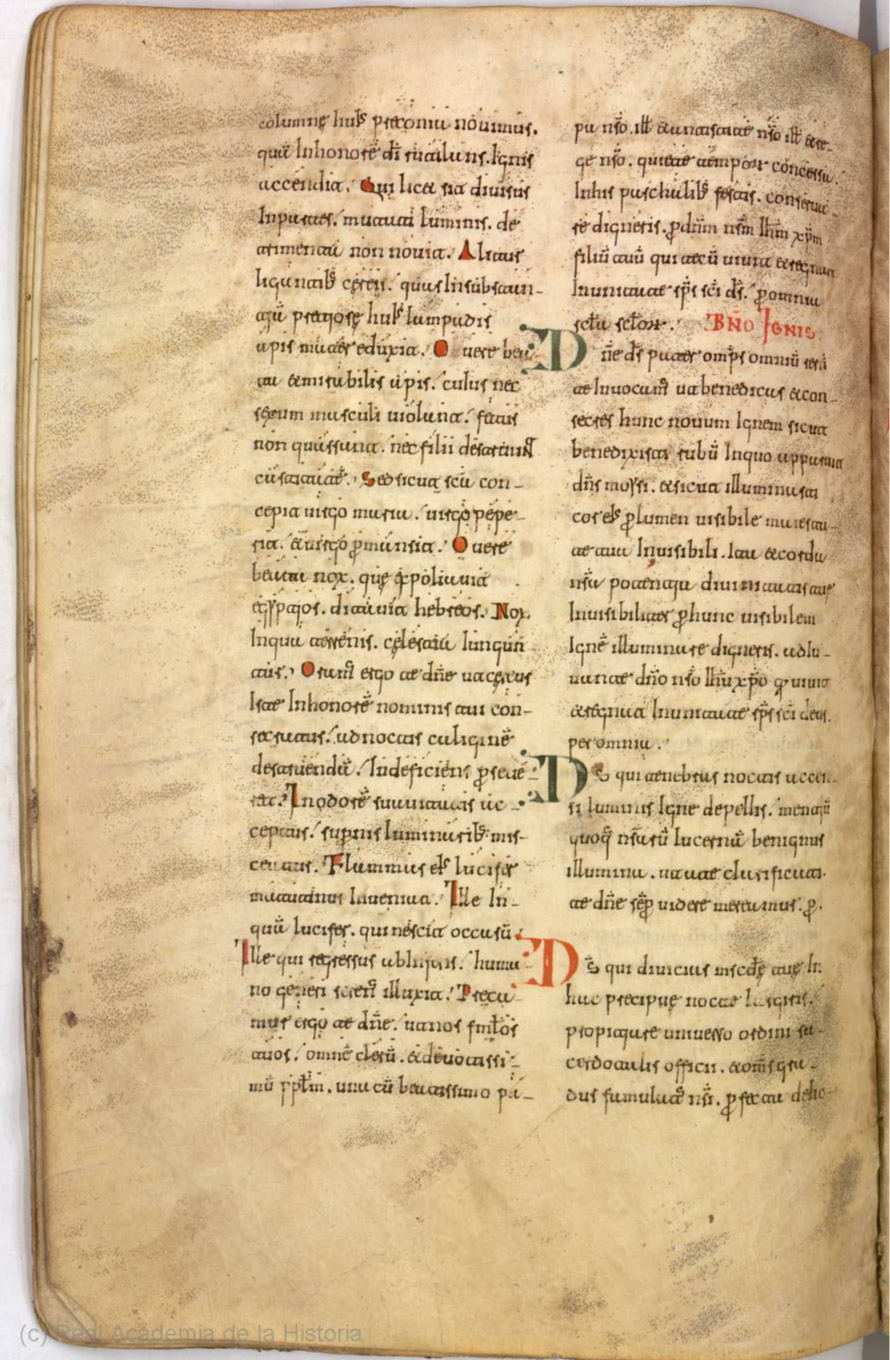 columnę huiꝰ preconia nouimus.
quā Inhonorē dī rutilans. Ignis
accendit. Qui licet sit diuisus
Inpartes. mutuati luminis. de
trimentū non nouit. Alitur
liquntibꝰ cęreis. quas Insubstan-
tiā pretiosę huiꝰ lampadis
apis mater eduxit. O uere bea
ta et mirabilis apis. cuius nec
sexum masculi uiolant. fetus
non quassant. nec filii destruunt
castitatē. Sed sicut scā con-
cepit uirgo maria. uirgo pepe-
rit. et uirgo permansit. O uere
beata nox. quę expoliauit
egyptios. ditauit hebreos. Nox
Inqua terrenis. cęlestia Iungun
tur. Oramꝰ ergo te dn̄e ut cęreus
Iste Inhonorē nominis tui con-
secratus. ad noctis caliginē
destruendā. Indeficiens perseue-
ret. In odorē suauitatis ac-
ceptus. supernis luminaribꝰ mis-
ceatur. Flammas eiꝰ lucifer
matutinus Inueniat. Ille In-
quā lucifer. qui nescit occasū.
Ille qui regressus ab Inferis. huma
no generi serenꝰ illuxit. Preca
mur ergo te dn̄e. ut nos famłos
tuos. omnē clerū. et deuotissi-
mū pptm̄. una cū beatissimo pa-
pa nr̄o. ill̄ et antistite nr̄o ill̄ et re-
ge nr̄o. quiete temporꝝ concessa.
Inhis paschalibꝰ festis. conserua-
re digneris. per dn̄m nr̄m Ihm̄ xp̄m
filiū tuū qui tecū uiuit et regnat
Inunitate sp̄s sc̄i dš. per omnia
scła scłoꝝ. BN̄O IGNIS.
Dn̄e dš pater omp̄s omniū
te Inuocamꝰ ut benedicas et con-
secres hunc nouum Ignem sicut
benedixisti rubū Inquo apparuit
dn̄s moysi. et sicut illuminasti
cor eiꝰ per lumen uisibile maiesta-
te tua Inuisibili. Ita et corda
nr̄a potentia diuinitatis tue
Inuisibiliter per hunc uisibilem
Ignē illuminare digneris. adiu-
uante dn̄o nr̄o Ihu xp̄o qui uiuit
et regnat Inunitate sp̄s sc̄i deus.
per omnia.
Dš qui tenebras noctis accen-
si luminis Igne depellis. mentiū
quoq nr̄arū lucernā benignus
illumina. ut uite clarificati.
te dn̄e semper uidere mereamur. per.
Dš qui diuicias mscd̄ę tuę In
hac precipuę nocte largiris.
propitiare uniuerso ordini sa-
cerdotalis officii. et om̄s gra-
dus famulatꝰ nr̄i. perfecta delic-